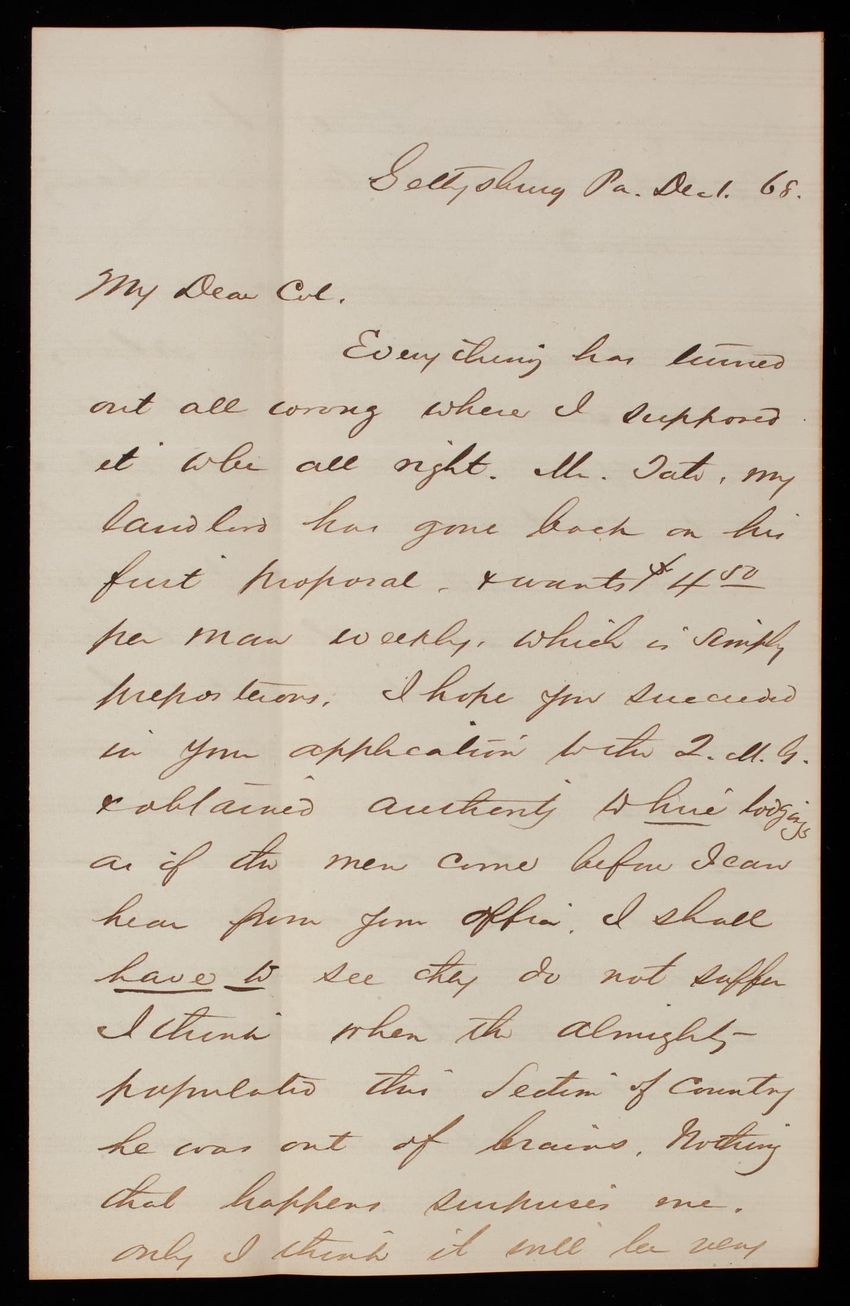 Gettysburg Pa. Dec 1. 68.
My Dear Col.
Everything has turned
out all wrong where I supposed
it wbe all right. Mr. Tate, my
landlord has gone back on his
first proposal - & wants $4 50
per man weekly, which is simply
preposterous. I hope you succeeded
in your application to the Q. M. G.
& obtained authority to hire lodgings
as if the men come before I can
hear from your office, I shall
have to see they do not suffer
I think when the Almighty
populated this Section of Country
he was out of brains. Nothing
that happens surprises me.
only I think it will be very